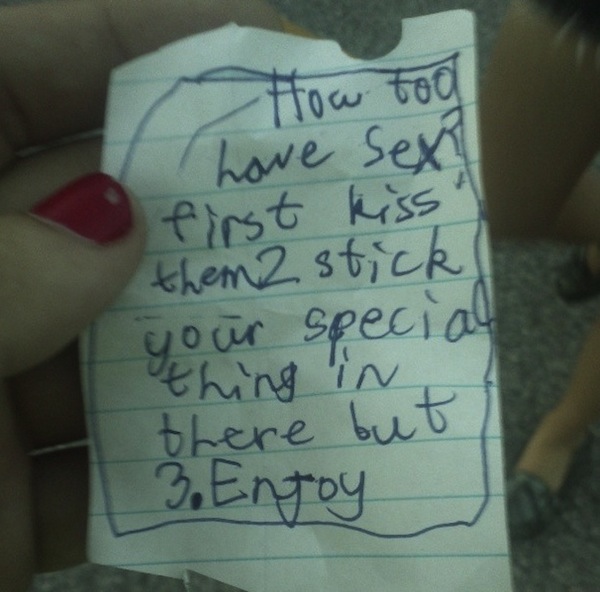 How too
have sex?
first kiss
them2 stick
your special
thing in
there but
3. Enjoy